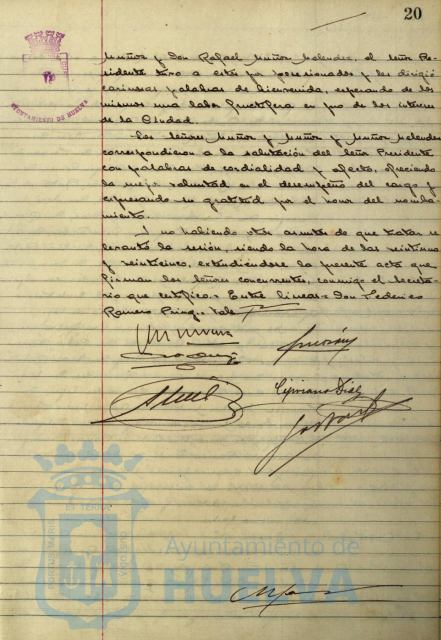 20
AYUNTAMIENTO DE HUELVA
Muñoz y Don Rafael Muñoz Melendez, el señor Pre-
sidente tuvo a estos por posesionados y les dirigió
cariñosas palabras de bienvenida, esperando de los
mismos una labor fructífera en pro de los intereses
de la Ciudad.
Los señores Muñoz y Muñoz y Muñoz Melendez
correspondieron a la salutación del señor Presidente
con palabras de cordialidad y afecto, ofreciendo
la mejor voluntad en el desempeño del cargo y
expresando su gratitud por el honor del nombra-
miento.
Y no habiendo otros asuntos de que tratar se
levantó la sesión, siendo la hora de las veintiuna
y veinticinco, extendiéndose la presente acta que
firman los señores concurrentes, conmigo el Secreta-
rio que certifico.- Entre lineas= Don Federico
Romero Pring.- Vale
Cipriano Diaz
Ayuntamiento de
HUELVA